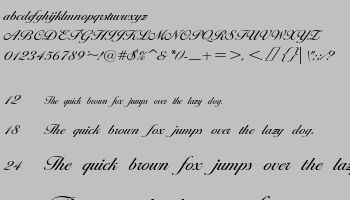 abcdefghijklmnopqrstuvwxyz
ABCDEFGHIJKLMNOPQRSTUVWXYZ
0123456789~!@#$%^& *()-_+=>, <.[] {}| \":;/?
12 The quick brown fox jumps over the lazy dog.
18 The quick brown fox jumps over the lazy dog.
24 The quick brown fox jumps over the